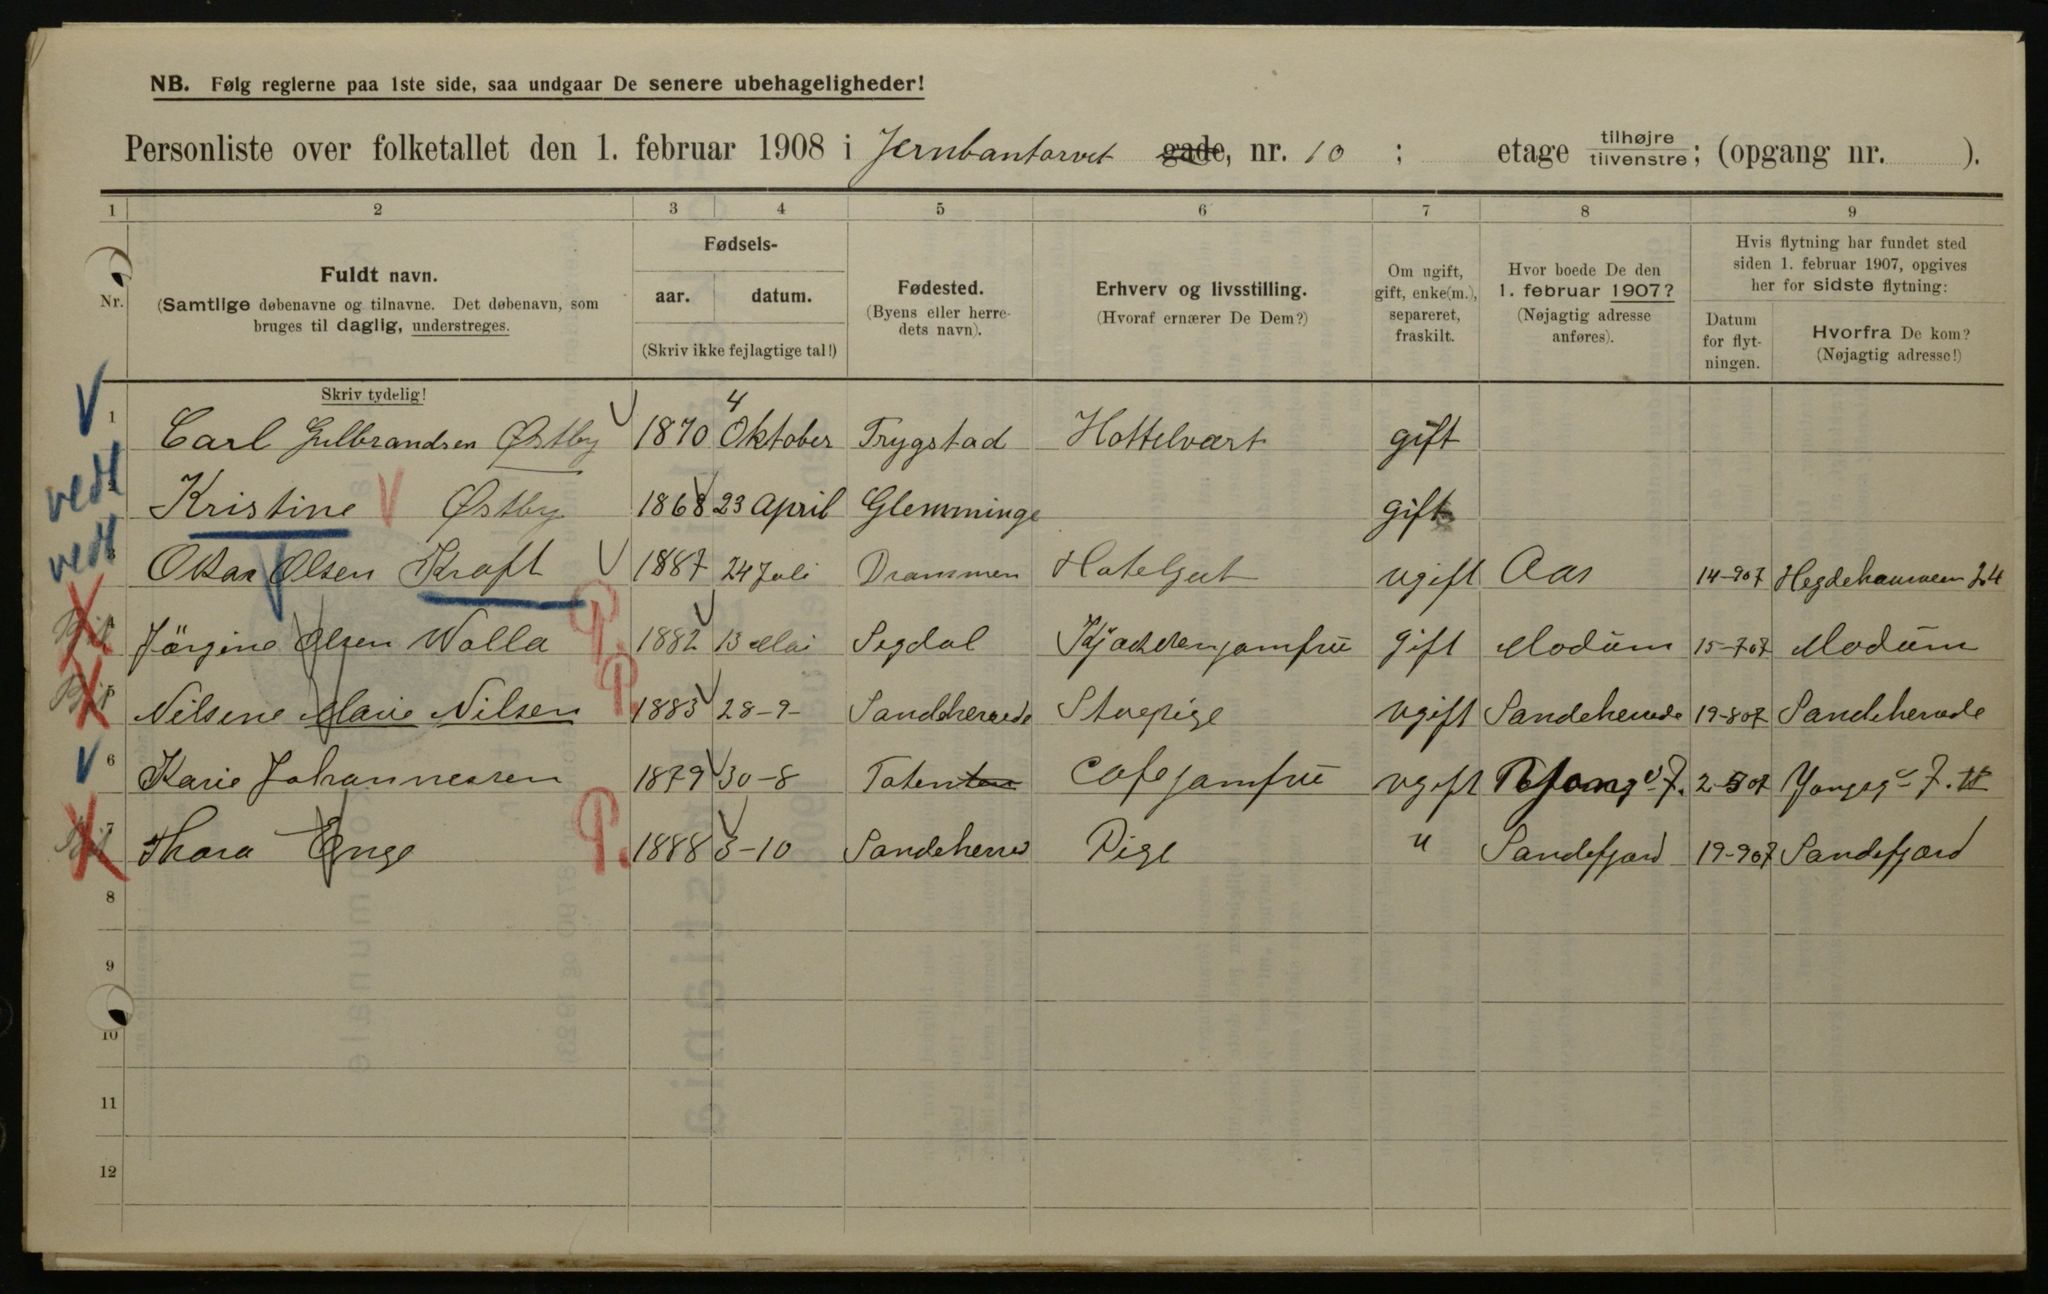 NB. Følg reglerne paa 1ste side, saa undgaar De senere ubehageligheder!
Personliste over folketallet den 1. februar 1908 i Jernbantorvet gade, nr. 10 ; etage tilhøjre tilvenstre; (opgang nr. ).
1 2 3 4 5 6 7 8 9
Nr.
Fuldt navn.
(Samtlige døbenavne og tilnavne. Det døbenavn, som
bruges til daglig, understreges.
Skriv tydelig!
Fødsels-
aar. datum.
(Skriv ikke fejlagtige tal!)
Fødested.
(Byens eller herre-
dets navn).
Erhverv og livsstilling.
(Hvoraf ernærer De Dem?)
Om ugift,
gift, enke(m.),
separeret,
fraskilt.
Hvor boede De den
1. februar 1907?
(Nøjagtig adresse
anføres).
Hvis flytning har fundet sted
siden 1. februar 1907, opgives
her for sidste flytning:
Datum
for flyt-
ningen.
Hvorfra De kom?
(Nøjagtig adresse!)
1 Carl Gulbrandsen Østby 1870 4 Oktober Trygstad Hottelvært gift
vedt Kristine Østby 1868 23 April Glemminge gift
vedt 3 Olsen Kraft 1887 24 Juli Drammen Hotelgut ugift Aas 14-907
4 Jörgine Olsen Wolla P. 1882 13 Mai Segdal gift Modum 15-707 Modum
5 Nilsene Marie Nilsen P. 1883 28-9- Sandeherrede Stuepige ugift Sandeherrede 19-807 Sandeherrede
6 Karie Johannessen 1879 30-8 Toten Cafejomfru ugift 2-507
7 Thora Enge P. 1888 3-10 Sandeherred Pige " Sandefjord 19-907 Sandefjord
8
9
10
11
12